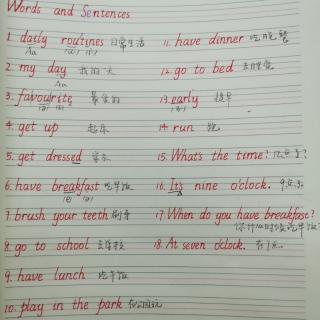 Words and Sentences
1. daily routines 日常生活
2. my day 我的一天
3. favourite 最喜欢的
4. get up 起床
5. get dressed 穿衣
6. have breakfast 吃早饭
7. brush your teeth 刷牙
8. go to school 去学校
9. have lunch 吃午饭
10. play in the park 在公园玩
11. have dinner 吃晚餐
12. go to bed 去睡觉
13. early 提早
14. run 跑
15. What's the time? 几点了?
16. It's nine o'clock. 9点了.
17. When do you have breakfast?
你什么时候吃早饭?
18. At seven o'clock. 在7点.